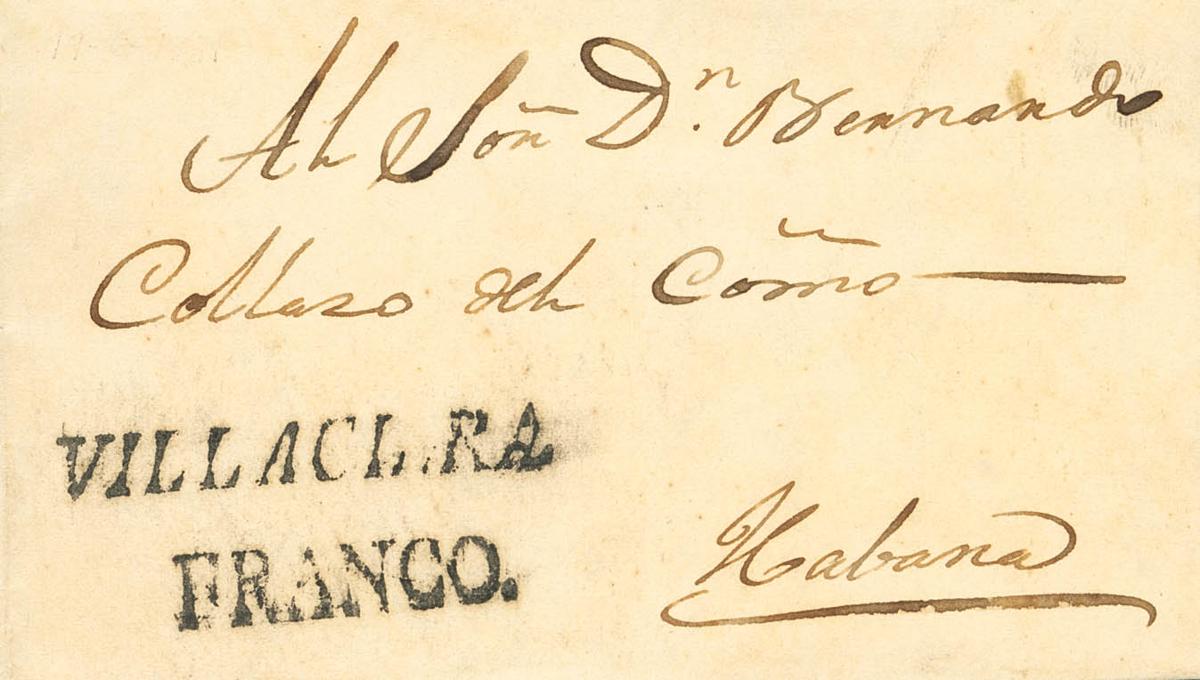 Al Señ Dn. Bernardo
Collazo del Comō
VILLACLARA
FRANCO.
Habana